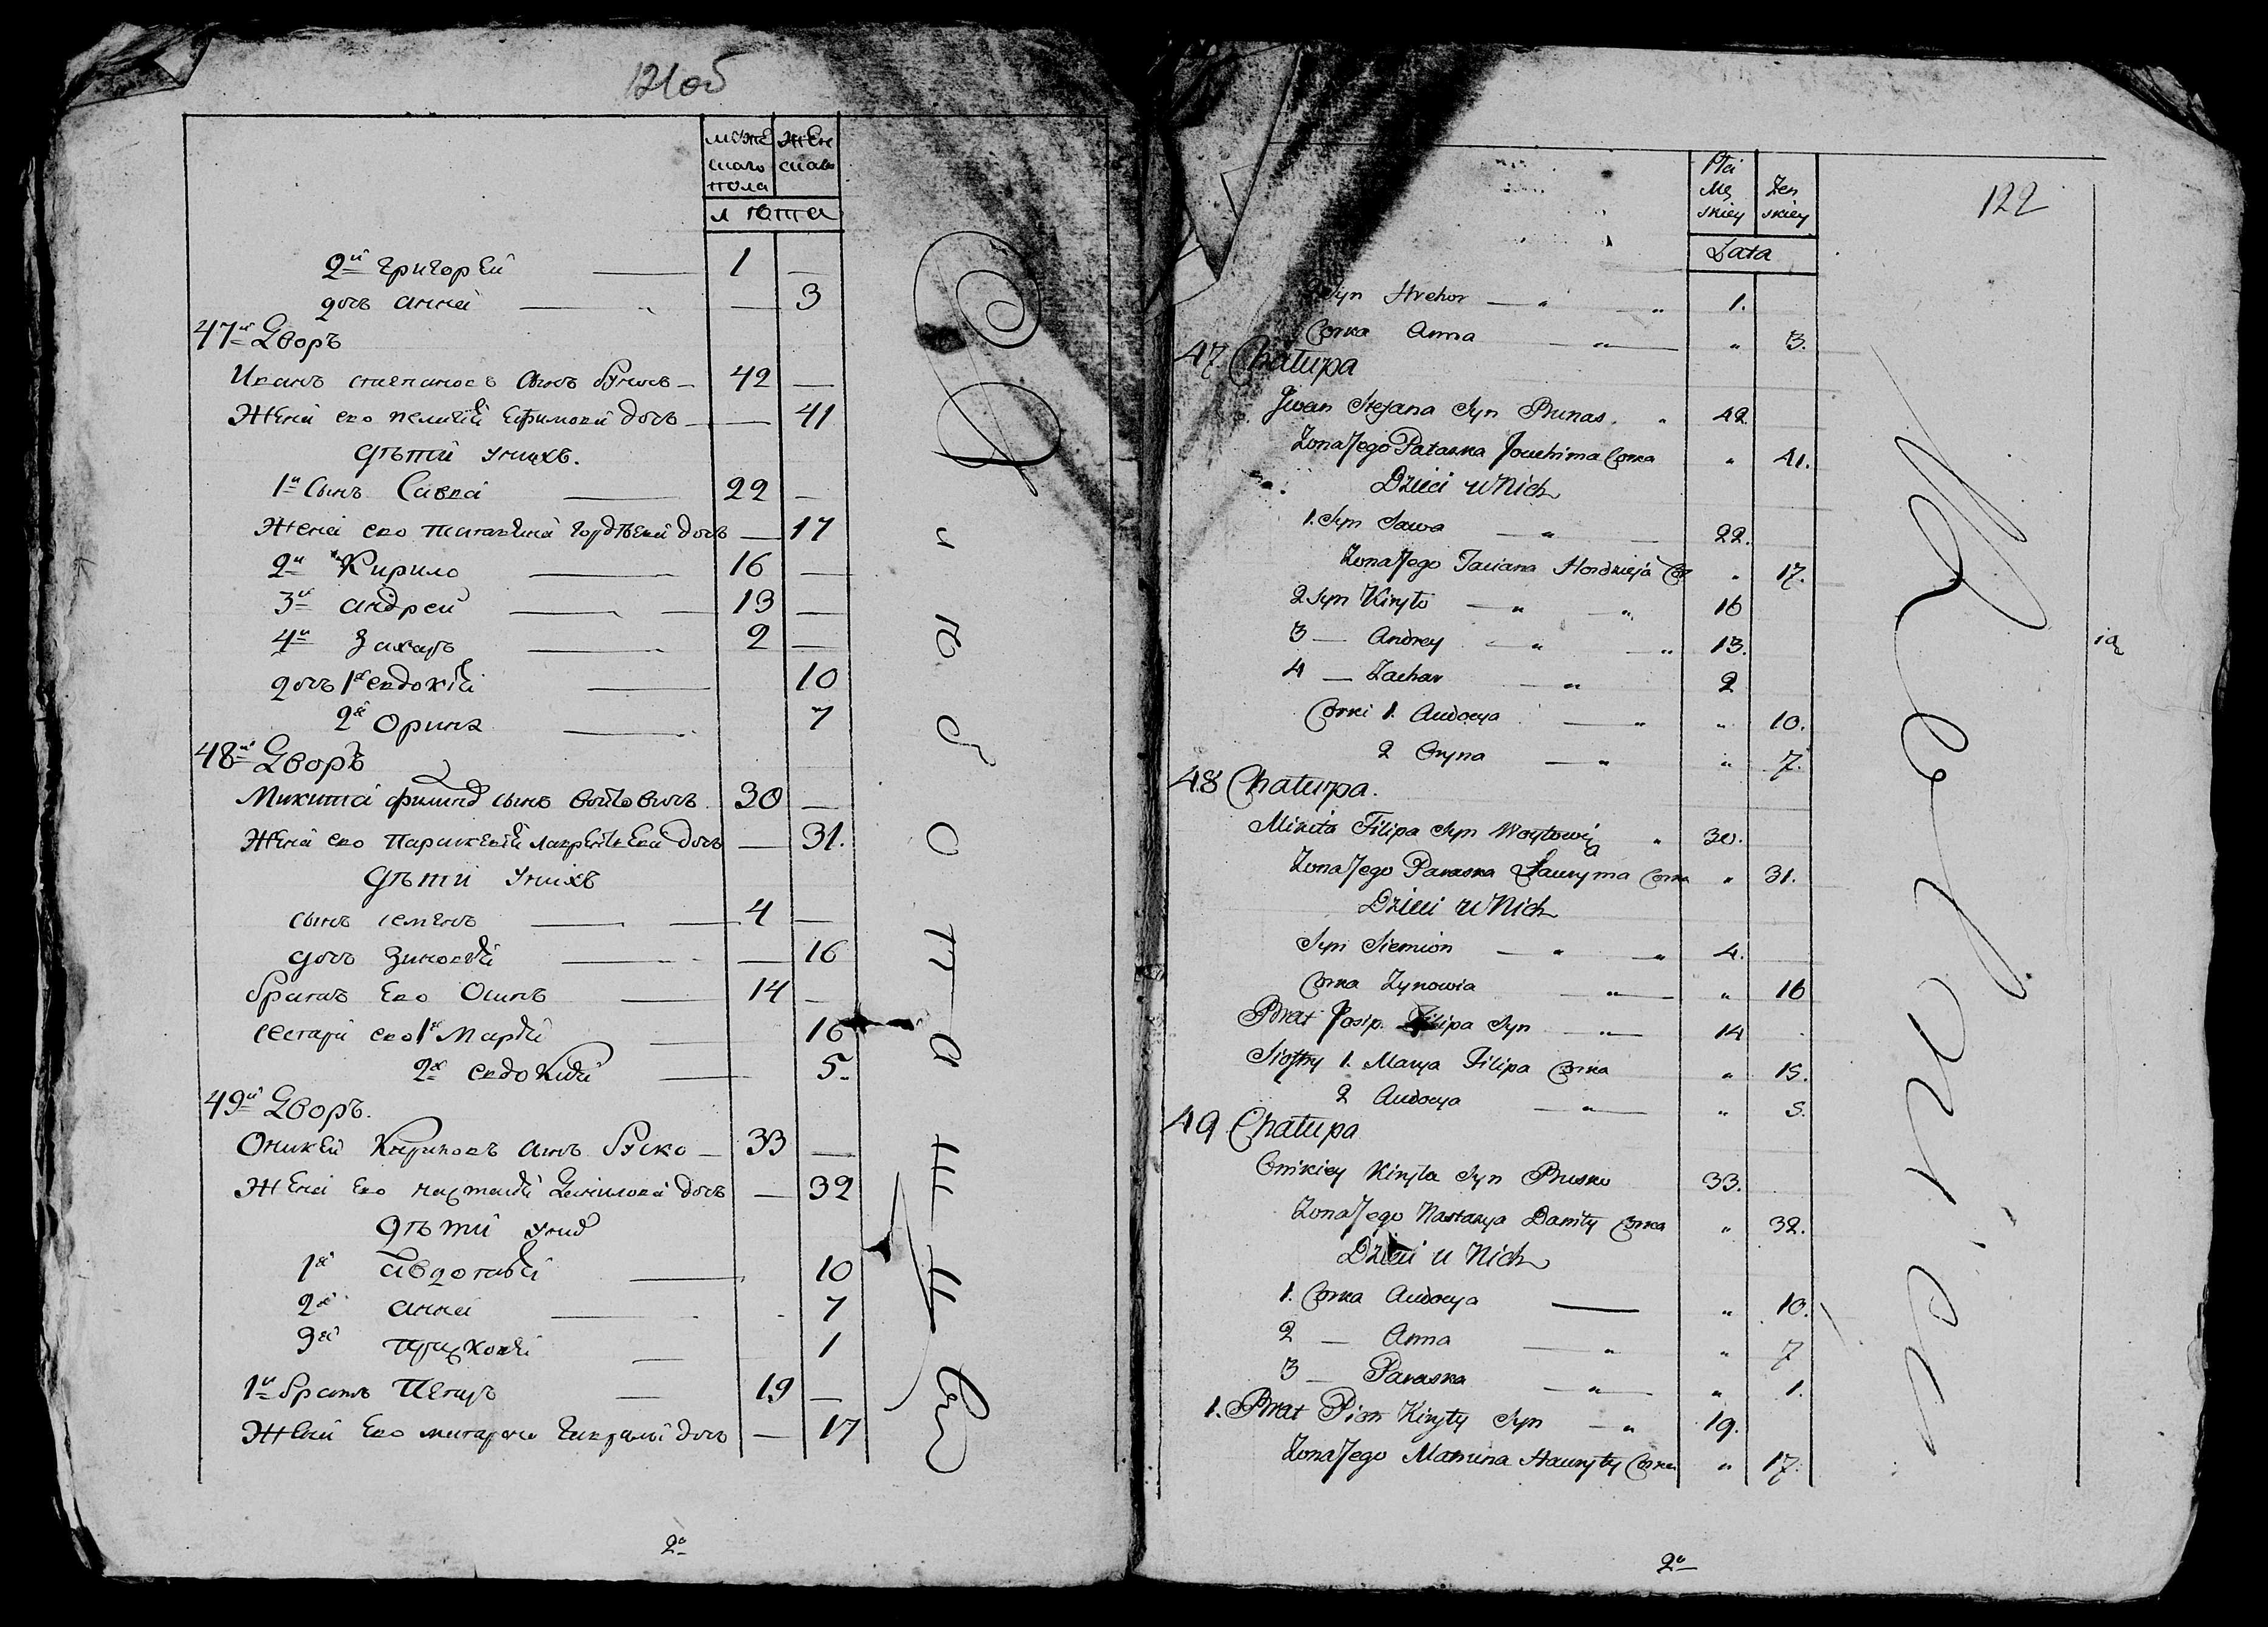 121об
мужескаго пола
женскаго
лѣта
2й григорей — 1 —
дочь анна — — 3
47й Дворъ
Иванъ степановъ сынъ — 42 —
Жена ево пелагея ефимова дочь — — 41
дѣти у нихъ.
1й Сынъ Савка — 22 —
Жена ево татьяна гордѣева дочь — 17
2й Кирило — 16 —
3й андреи — 13 —
4й Захаръ — 2 —
дочь 1я евдокия — 10
2я Орина — 7
48й Дворъ
Микита филипа сынъ войтовичъ 30 —
Жена ево парасковия дочь — 31.
дѣти у нихъ
сынъ семенъ — 4 —
дочь зиновья — — 16
братъ Ево Осипъ — 14 —
сестры ево 1я Марья — 16
2я евдокия — 5.
49й Дворъ.
Оникеи Кириловъ сынъ Руско — 33 —
Жена Ево настасья данилова дочь — 32
дѣти у нихъ
1я авдотья — 10
2я анна — 7
3я — 1
1й братъ Петръ — 19 —
Жена Ево дочь — 17
2й
122
Płci Męskiey
Żeńskiey
Lata
2 Syn Hrehor — „ — „ 1.
Corka Anna — „ — „ 3.
47 Chałupa
Jwan Stefana Syn Bunas „ 42
Zona Jego Pałaska Jouchima Corka „ 41.
Dzieci u Nich
1. Syn Sawa — „ — 22.
Zona Jego Taciana Hordzieja Cor „ 17.
2 Syn Kiryło — „ — „ 16
3 — Andrey — „ — „ 13.
4 — Zachar — „ 2
Corki 1. Audocya — „ „ 10.
2 Oryna — „ „ 7.
48 Chałupa.
Mikita Filipa Syn Woytowicz „ 30.
Zona Jego Paraska Ławryma Corka „ 31.
Dzieci u Nich
Syn Siemion — „ — „ 4.
Corka Zynowia — „ — „ 16
Brat Josip Filipa Syn — „ — 14
Siostry 1. Marya Filipa Corka „ 15.
2 Audocya — „ — „ 5.
49 Chałupa
Onikiey Kiryła Syn Rusko 33.
Zona Jego Nastazya Daniły Corka „ 32.
Dzieci u Nich
1. Corka Audocya — „ 10.
2 — Anna — „ „ 7
3 — Paraska — „ — „ 1.
1. Brat Piotr Kiryły Syn — „ 19.
Zona Jego Matruna Hauryły Corka „ 17.
2a